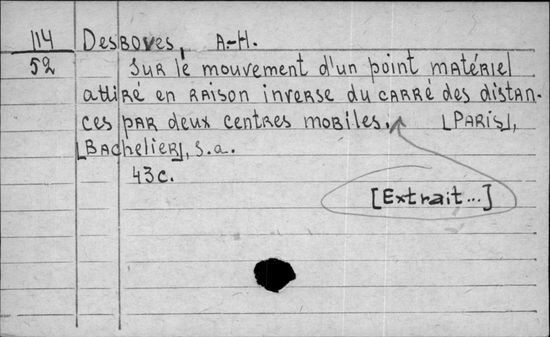 114 Desboves, A.-H.
52 Sur le mouvement d'un point matériel
attiré en raison inverse du carré des distan-
ces par deux centres mobiles. [Paris],
[Bachelier], s.a.
43c.
[Extrait...]